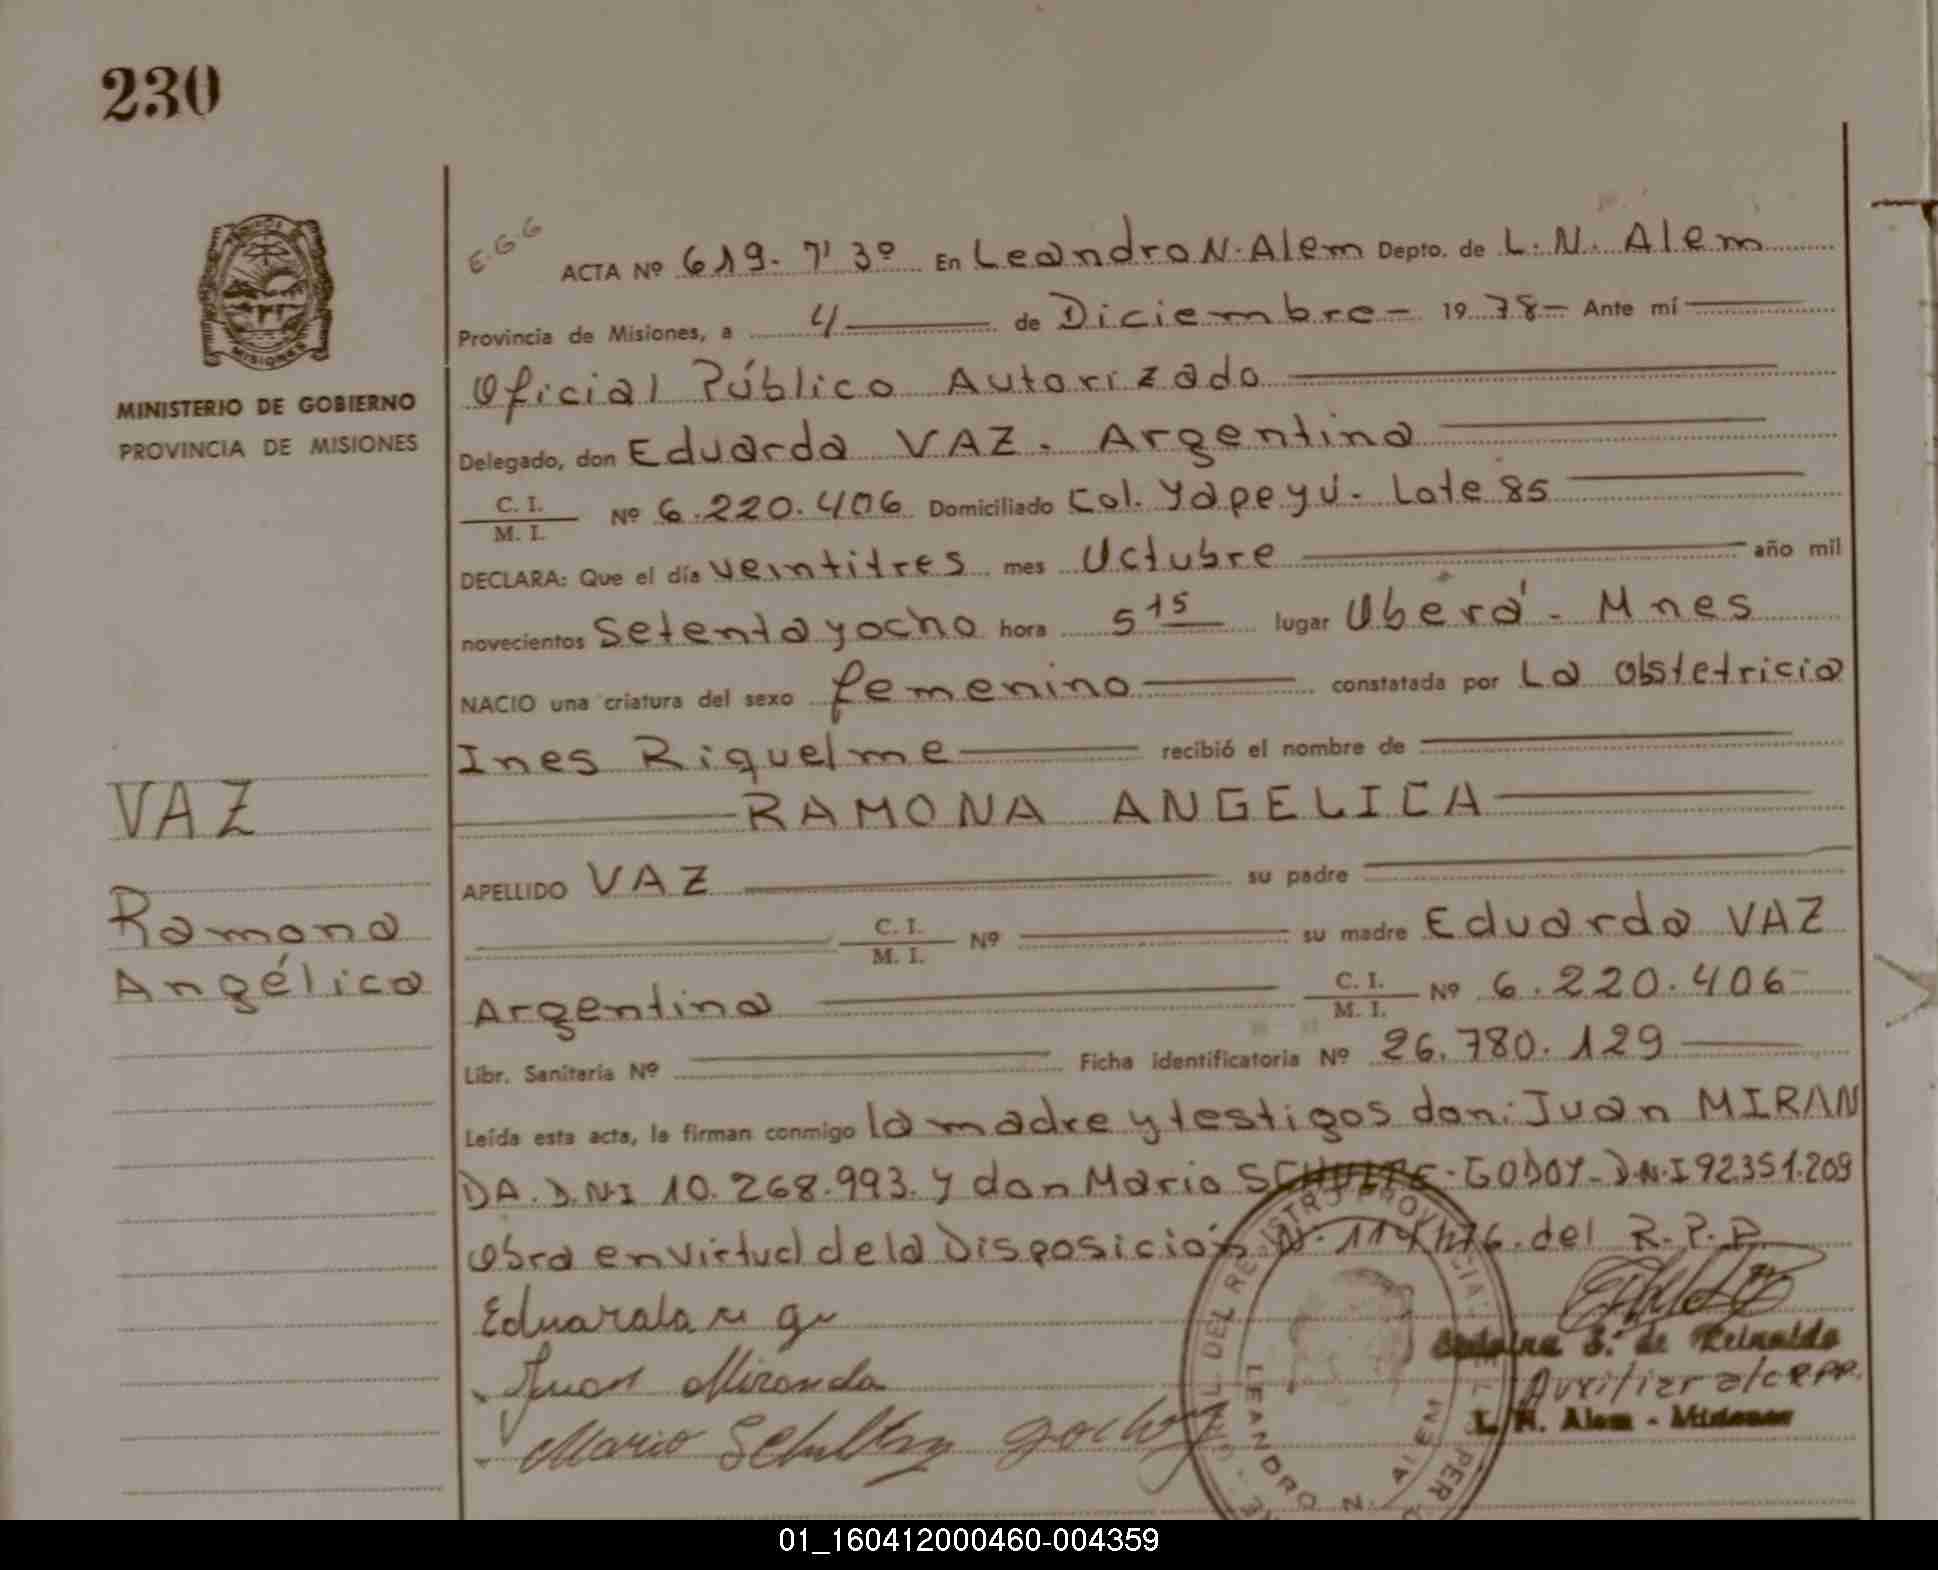 230
E.G.G
ACTA Nº 619. Tº 3º En Leandro N. Alem Depto. de L. N. Alem
Provincia de Misiones, a 4 de Diciembre - 19 78 - Ante mí
Oficial Público Autorizado
MINISTERIO DE GOBIERNO
PROVINCIA DE MISIONES
MISIONES
Delegado, don Eduarda VAZ. Argentina
C. I.
M. I. Nº 6.220.406 Domiciliado Col. Yapeyú. Lote 85
DECLARA: Que el día veintitres mes Octubre año mil
novecientos Setenta y ocho hora 5 15 lugar Oberá - Mnes
NACIO una criatura del sexo femenino constatada por La obstetricia
Ines Riquelme recibió el nombre de
VAZ
RAMONA ANGELICA
APELLIDO VAZ su padre
Ramona
Angélica
C. I.
M. I. Nº su madre Eduarda VAZ
Argentina C. I.
M. I. Nº 6.220.406
Libr. Sanitaria Nº Ficha identificatoria Nº 26.780.129
Leída esta acta, la firman conmigo la madre y testigos don: Juan MIRAN
DA. D.N.I 10.268.993. y don Mario SCHULTE - GODOY - D.N.I 92.351.209
Obra en virtud de la Disposición N. del R.P.P
Eduarda
Juan Miranda
Mario
DEL REGISTRO PROVINCIAL
LEANDRO N. ALEM
S. de Reinaldo
Auxiliar a/c R.P.P.
L. N. Alem - Misiones
01_160412000460-004359